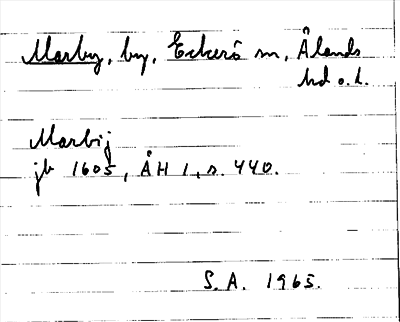 Marby, by, Eckerö sn, Ålands
hd o. l.
Marbij
jb 1605, ÅH 1, s. 440.
S. A. 1965.